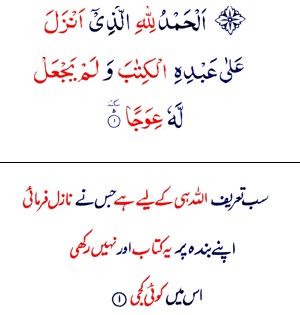 اَلْحَمْدُ لِلّٰهِ الَّذِیْۤ اَنْزَلَ
عَلٰی عَبْدِهِ الْكِتٰبَ وَ لَمْ یَجْعَلْ
لَّهٗ عِوَجًا ۱
سب تعریف اللہ ہی کے لیے ہے جس نے نازل فرمائی
اپنے بندہ پر یہ کتاب اور نہیں رکھی
اس میں کوئی کجی ۱